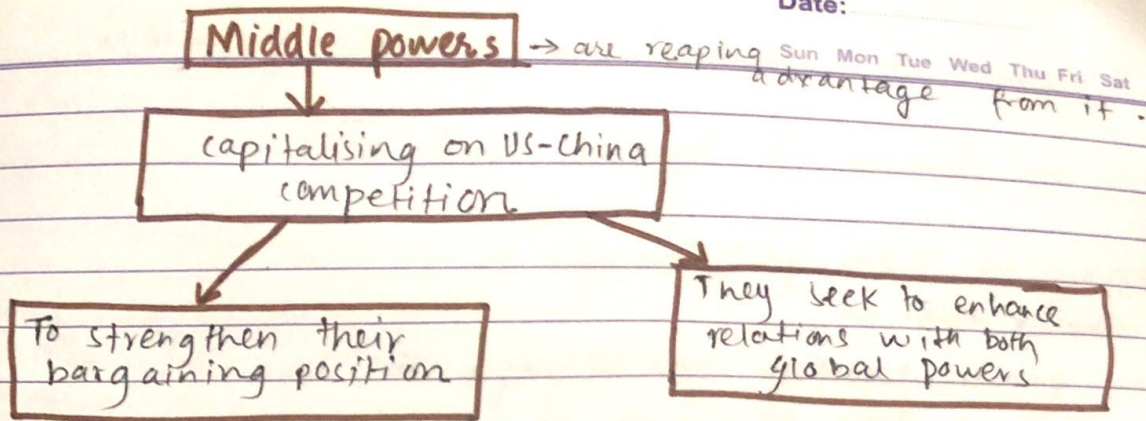 Date:
Sun Mon Tue Wed Thu Fri Sat
Middle powers → are reaping
advantage from it.
capitalising on US-China
competition
To strengthen their
bargaining position
They seek to enhance
relations with both
global powers